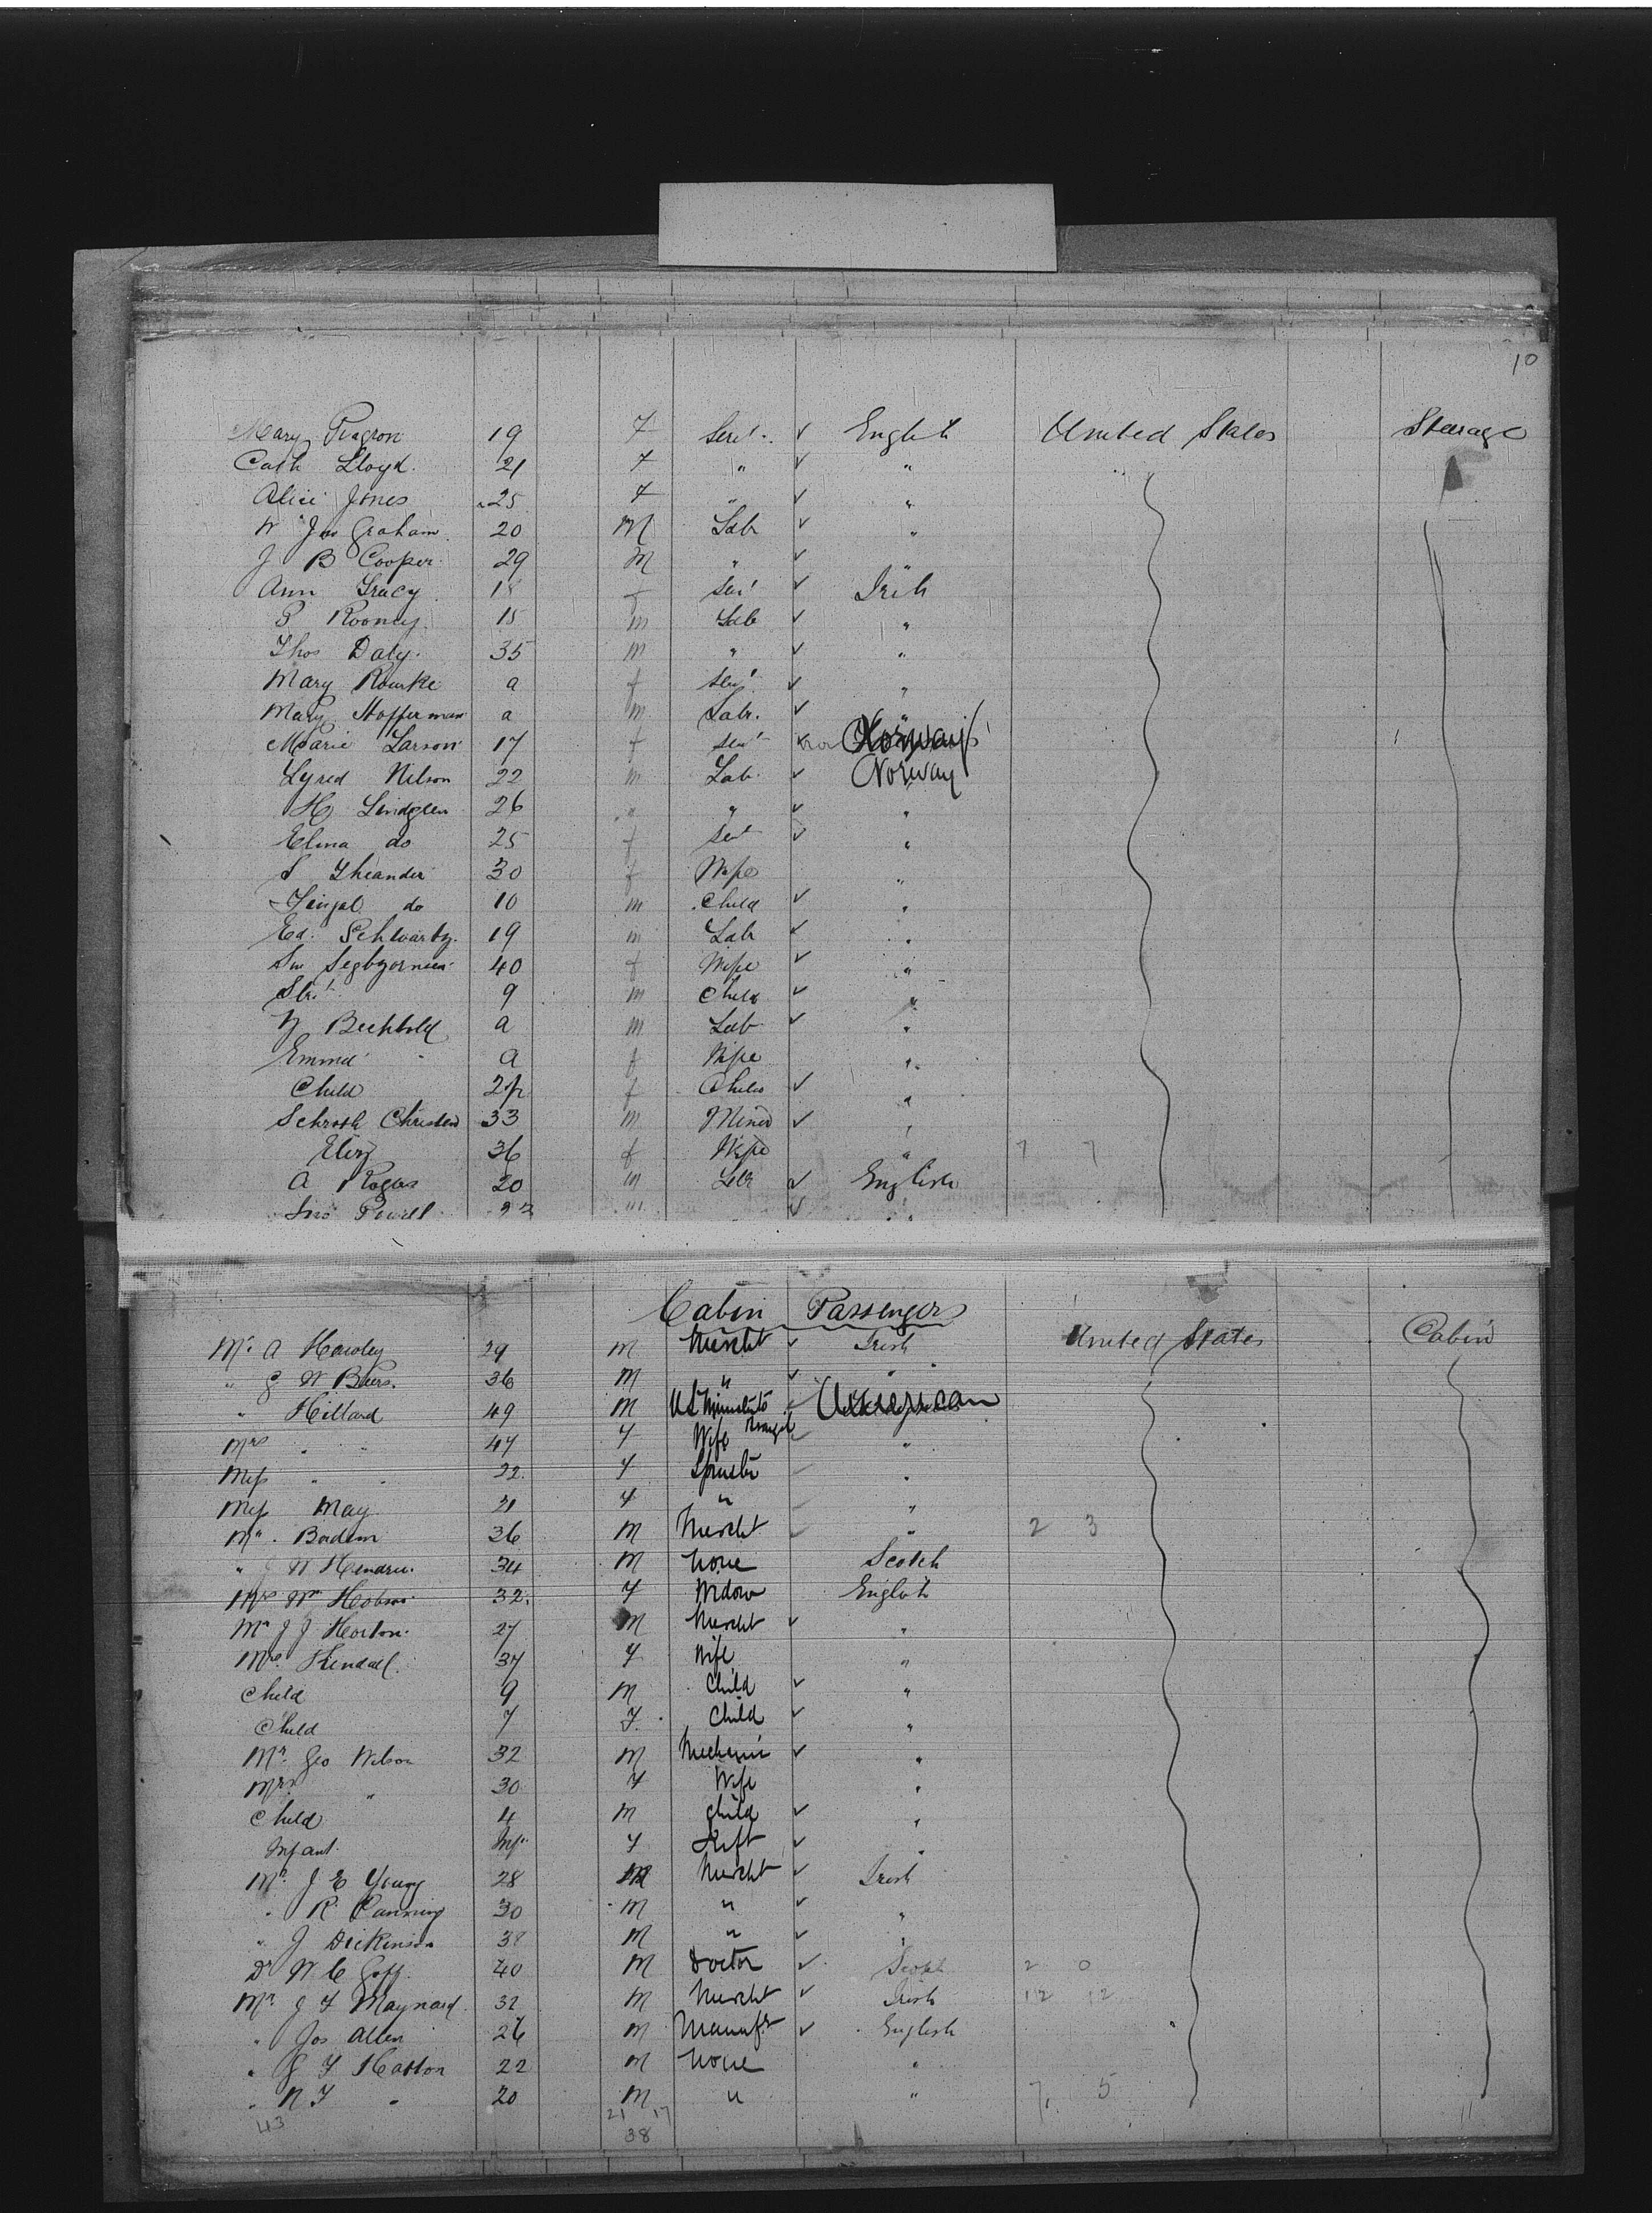 10
Mary 19 F Serv. ✓ English United States Steerage
Cath Lloyd. 21 F " ✓ "
Alice Jones 25 F " ✓ "
W Jas Graham 20 M Lab ✓ "
J B Cooper 29 M " ✓ "
Ann Tracy 18 f Serv ✓ Irish
P Rooney 15 m Lab ✓ "
Thos Daly. 35 m " ✓ "
Mary Rourke a f serv ✓ "
Mary Hofferman a m Labr. ✓ "
Marie Larson 17 f serv ✓ Norway
Nilson 22 m Lab. ✓ Norway
H Lindgren 26 " " ✓ "
Elina do 25 f Sert ✓ "
S Theander 30 f Wife "
do 10 m Child ✓ "
Ed. 19 m Lab ✓ "
40 f Wife ✓ "
9 m Child ✓ "
Bechtold a m Lab ✓ "
Emma a f Wife "
Child f Child ✓ "
Schroth 33 m Miner ✓ "
Eliz 36 f Wife " 7 7
A 20 m Labr ✓ English
Jno Powell m ✓ "
Cabin Passengers
Mr. A Hawley 29 M Mercht ✓ Irish United States Cabin
" 36 M " ✓ "
" Hillard 49 M American
Mrs " " 47 F Wife "
Miss " " 22. F Spinster "
Miss May 21 F " "
Mr. 36 M Mercht " 2 3
" W Hendrie. 34 M None Scotch
Mrs Wm Hobson 32. F Widow English
Mr J J Horton. 27 M Mercht ✓ "
Mrs. Kendall. 37 F Wife "
Child 9 M Child ✓ "
Child 7 F. Child ✓ "
Mr. Geo Wilson 32 M Mechanic ✓ "
Mrs " 30 F Wife "
Child 4 M Child ✓ "
Infant. Inf F ✓ "
Mr. J E Young 28 M Mercht ✓ Irish
" R. Canning 30 M " ✓ "
" J Dickinson 38 M " ✓ "
Dr W C Goff. 40 M Doctor ✓ Scotch 2 0
Mr J F Maynard. 32 M Mercht ✓ Irish 12 12
" Jos Allen 26 M Manufr ✓ English
" Hatton 22 M None "
" N F " 20 M " " 7. 5
43 21 17
38